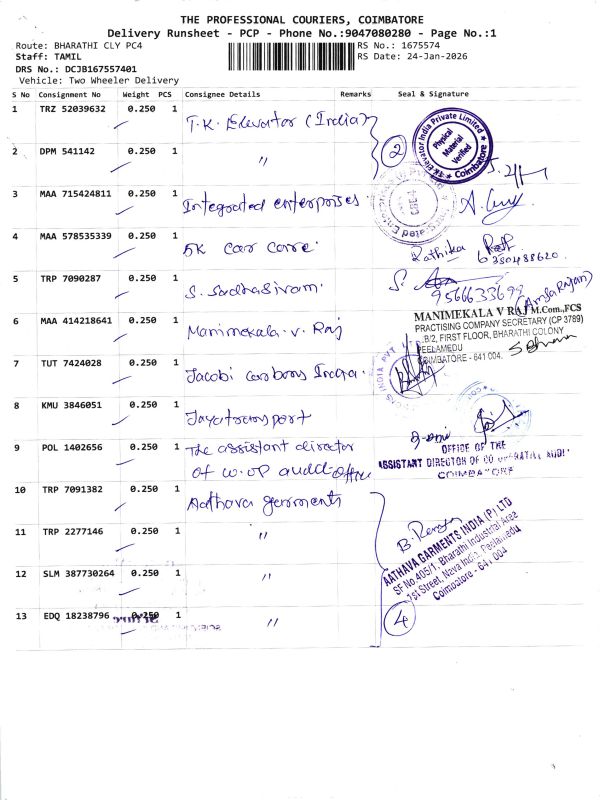 THE PROFESSIONAL COURIERS, COIMBATORE
Delivery Runsheet - PCP - Phone No.:9047080280 - Page No.:1
Route: BHARATHI CLY PC4
RS No.: 1675574
Staff: TAMIL
RS Date: 24-Jan-2026
DRS No.: DCJB167557401
Vehicle: Two Wheeler Delivery
S No Consignment No Weight PCS Consignee Details Remarks Seal & Signature
1 TRZ 52039632 0.250 1 T.K. Elevator (India)
2
TK Elevator India Private Limited
Physical Material Verified
Coimbatore
2 DPM 541142 0.250 1 "
3 MAA 715424811 0.250 1 Integrated enterprises
4 MAA 578535339 0.250 1 5K car care
Rathika
6380488620
5 TRP 7090287 0.250 1 S. Sadhasivam
9566633699
6 MAA 414218641 0.250 1 Manimekala. V. Raj
MANIMEKALA V RAJ M.Com.,FCS
PRACTISING COMPANY SECRETARY (CP 3789)
B/2, FIRST FLOOR, BHARATHI COLONY
PEELAMEDU
COIMBATORE - 641 004.
7 TUT 7424028 0.250 1 Jacobi carbons India
8 KMU 3846051 0.250 1 Jayatransport
9 POL 1402656 0.250 1 The assistant director
of co.op audit office
OFFICE OF THE
ASSISTANT DIRECTOR OF CO OPERATIVE AUDIT
COIMBATORE
10 TRP 7091382 0.250 1 Aathava garments
11 TRP 2277146 0.250 1 "
AATHAVA GARMENTS INDIA (P) LTD
SF No.405/1, Bharathi Industrial Area
1st Street, Nava India, Peelamedu
Coimbatore - 641 004
12 SLM 387730264 0.250 1 "
13 EDQ 18238796 0.250 1 "
4